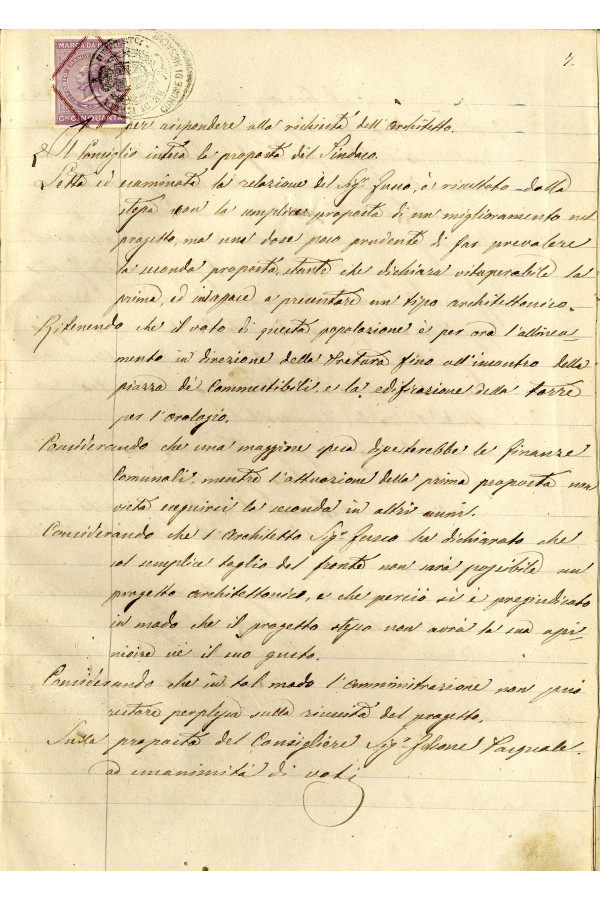 MARCA DA BOLLO
Cmi CINQUANTA
COMUNE DI
2
per rispondere alla richiesta dell'Architetto.
Il Consiglio intesa la proposta del Sindaco.
Letta ed esaminata la relazione del Sigr. Fusco, è risultato dalla
stessa non la semplice proposta di un miglioramento nel
progetto, ma una dose poco prudente di far prevalere
la seconda proposta, stante che dichiara vituperabile la
prima, ed incapace a presentare un tipo architettonico.
Ritenendo che il voto di questa popolazione è per ora l'allinea-
mento in direzione della Pretura fino all'incontro della
piazza de' Commestibili, e la edificazione della torre
per l'orologio.
Considerando che una maggiore spesa dissesterebbe le finanze
Comunali, mentre l'attuazione della prima proposta non
vieta eseguirsi la seconda in altri anni.
Considerando che l'Architetto Sigr. Fusco ha dichiarato che
col semplice taglio del fronte non sarà possibile un
progetto architettonico, e che perciò si è pregiudicato
in modo che il progetto stesso non avrà la sua opi-
nione nè il suo gusto.
Considerando che in tal modo l'Amministrazione non può
restare perplessa sulla riuscita del progetto.
Sulla proposta del Consigliere Sigr. Pasquale.
ad unanimità di voti